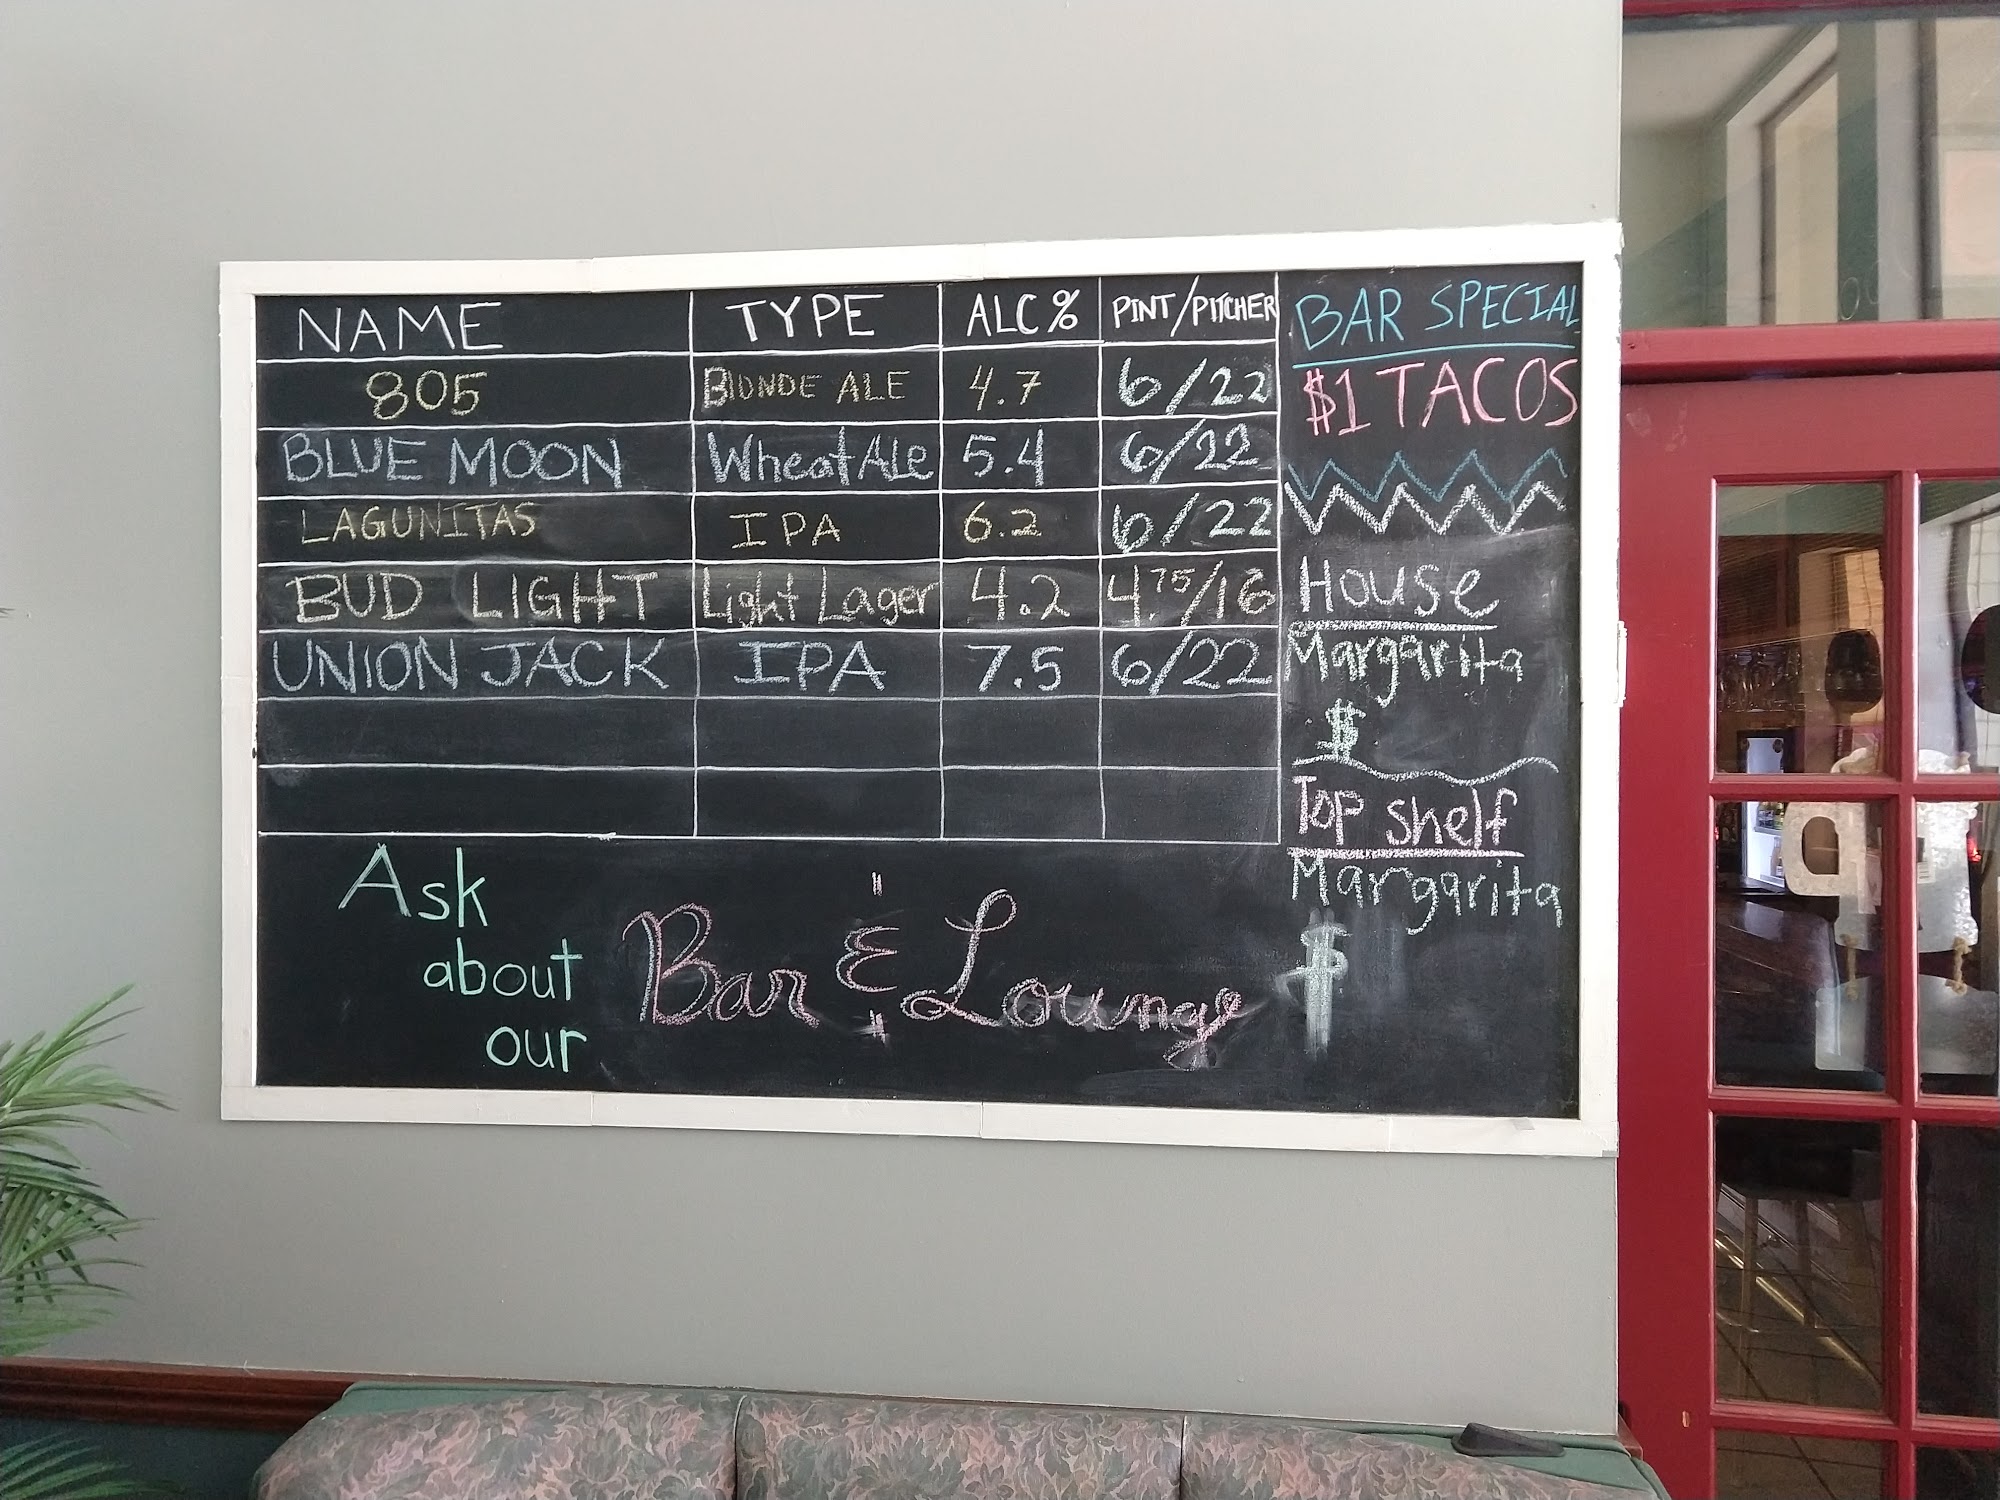 NAME TYPE ALC% PINT/PITCHER
805 BlONDE ALE 4.7 6/22
BLUE MOON Wheat Ale 5.4 6/22
LAGUNITAS IPA 6.2 6/22
BUD LIGHT Light Lager 4.2 4.75/16
UNION JACK IPA 7.5 6/22
BAR SPECIAL
$1 TACOS
House
Margarita
$
Top shelf
Margarita
$
Ask
about
our
Bar & Lounge